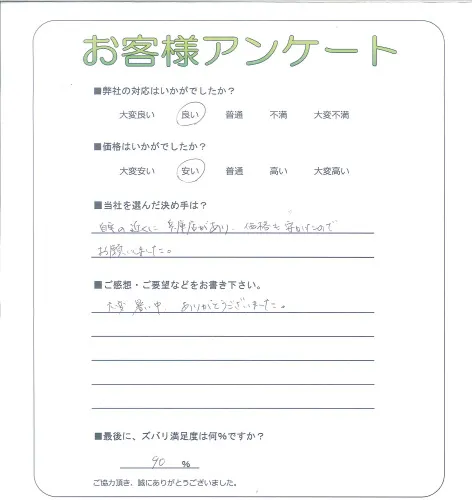 お客様アンケート
■弊社の対応はいかがでしたか?
大変良い 良い 普通 不満 大変不満
■価格はいかがでしたか?
大変安い 安い 普通 高い 大変高い
■当社を選んだ決め手は?
自宅の近くに 兵庫店があり、価格も安かったので
お願いしました。
■ご感想・ご要望などをお書き下さい。
大変 暑い中、ありがとうございました。
■最後に、ズバリ満足度は何%ですか?
90 %
ご協力頂き、誠にありがとうございました。